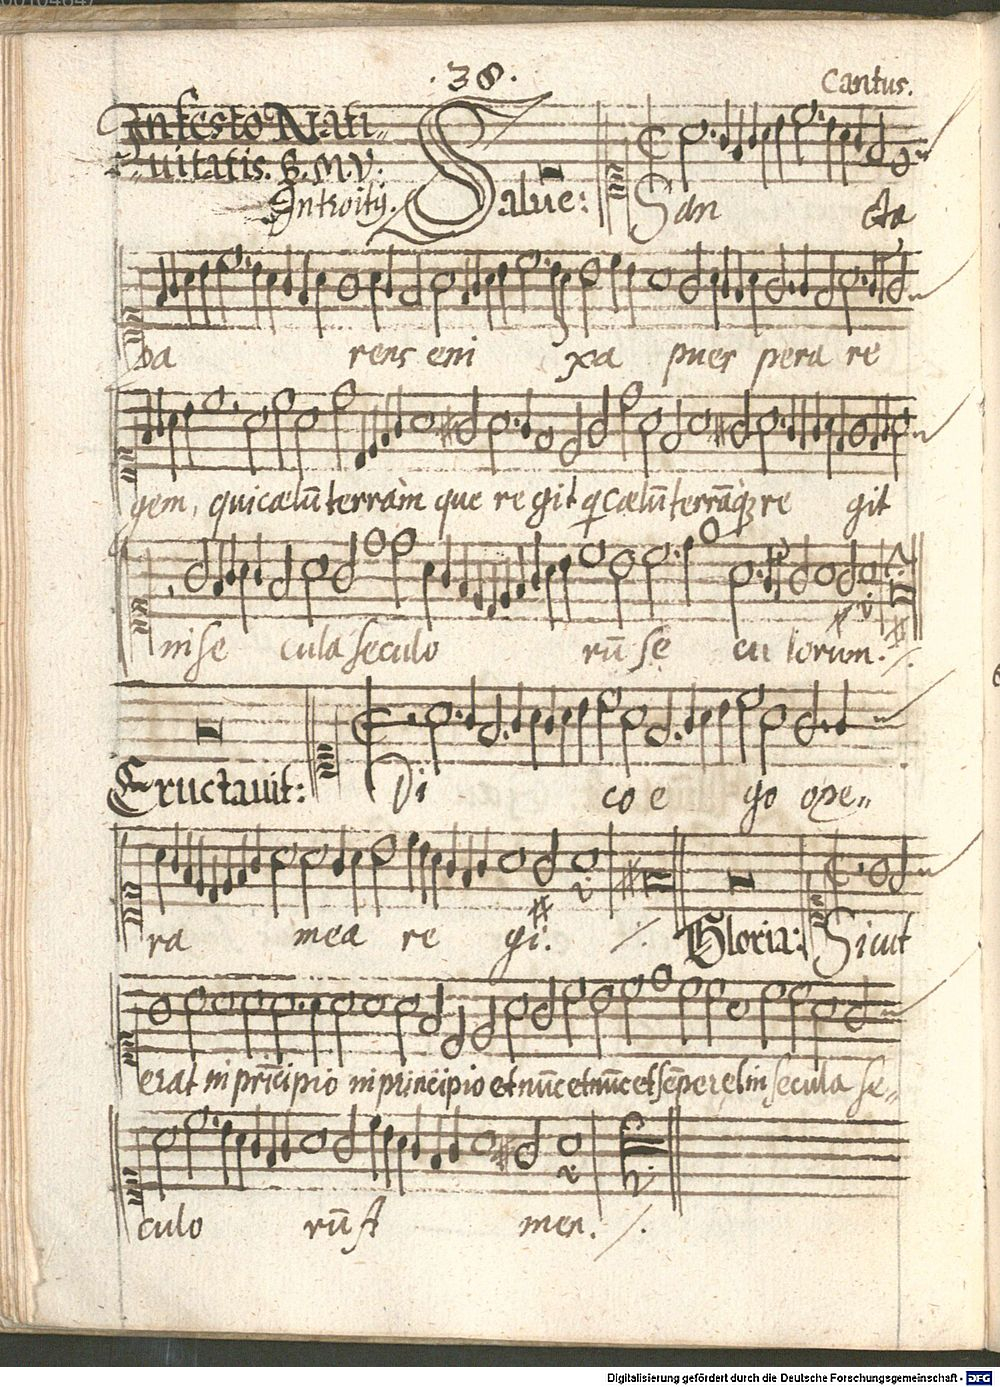 .38.
Cantus.
In festo Nati-
uitatis. B. M. V.
Introitꝰ. Salue: San cta
pa rens eni xa puer pera re
gem, qui cælū terrām que re git q̃ cælū terrāq́ꝫ re git
in se cula seculo rū se cu lorum. ./.
Eructauit: Di co e go ope-
ra mea re gi. ./. Gloria: Sicut
erat in prīcipio in principio et nūc et nūc et sēper et in secula se-
culo rū A men. ./.
Digitalisierung gefördert durch die Deutsche Forschungsgemeinschaft - DFG